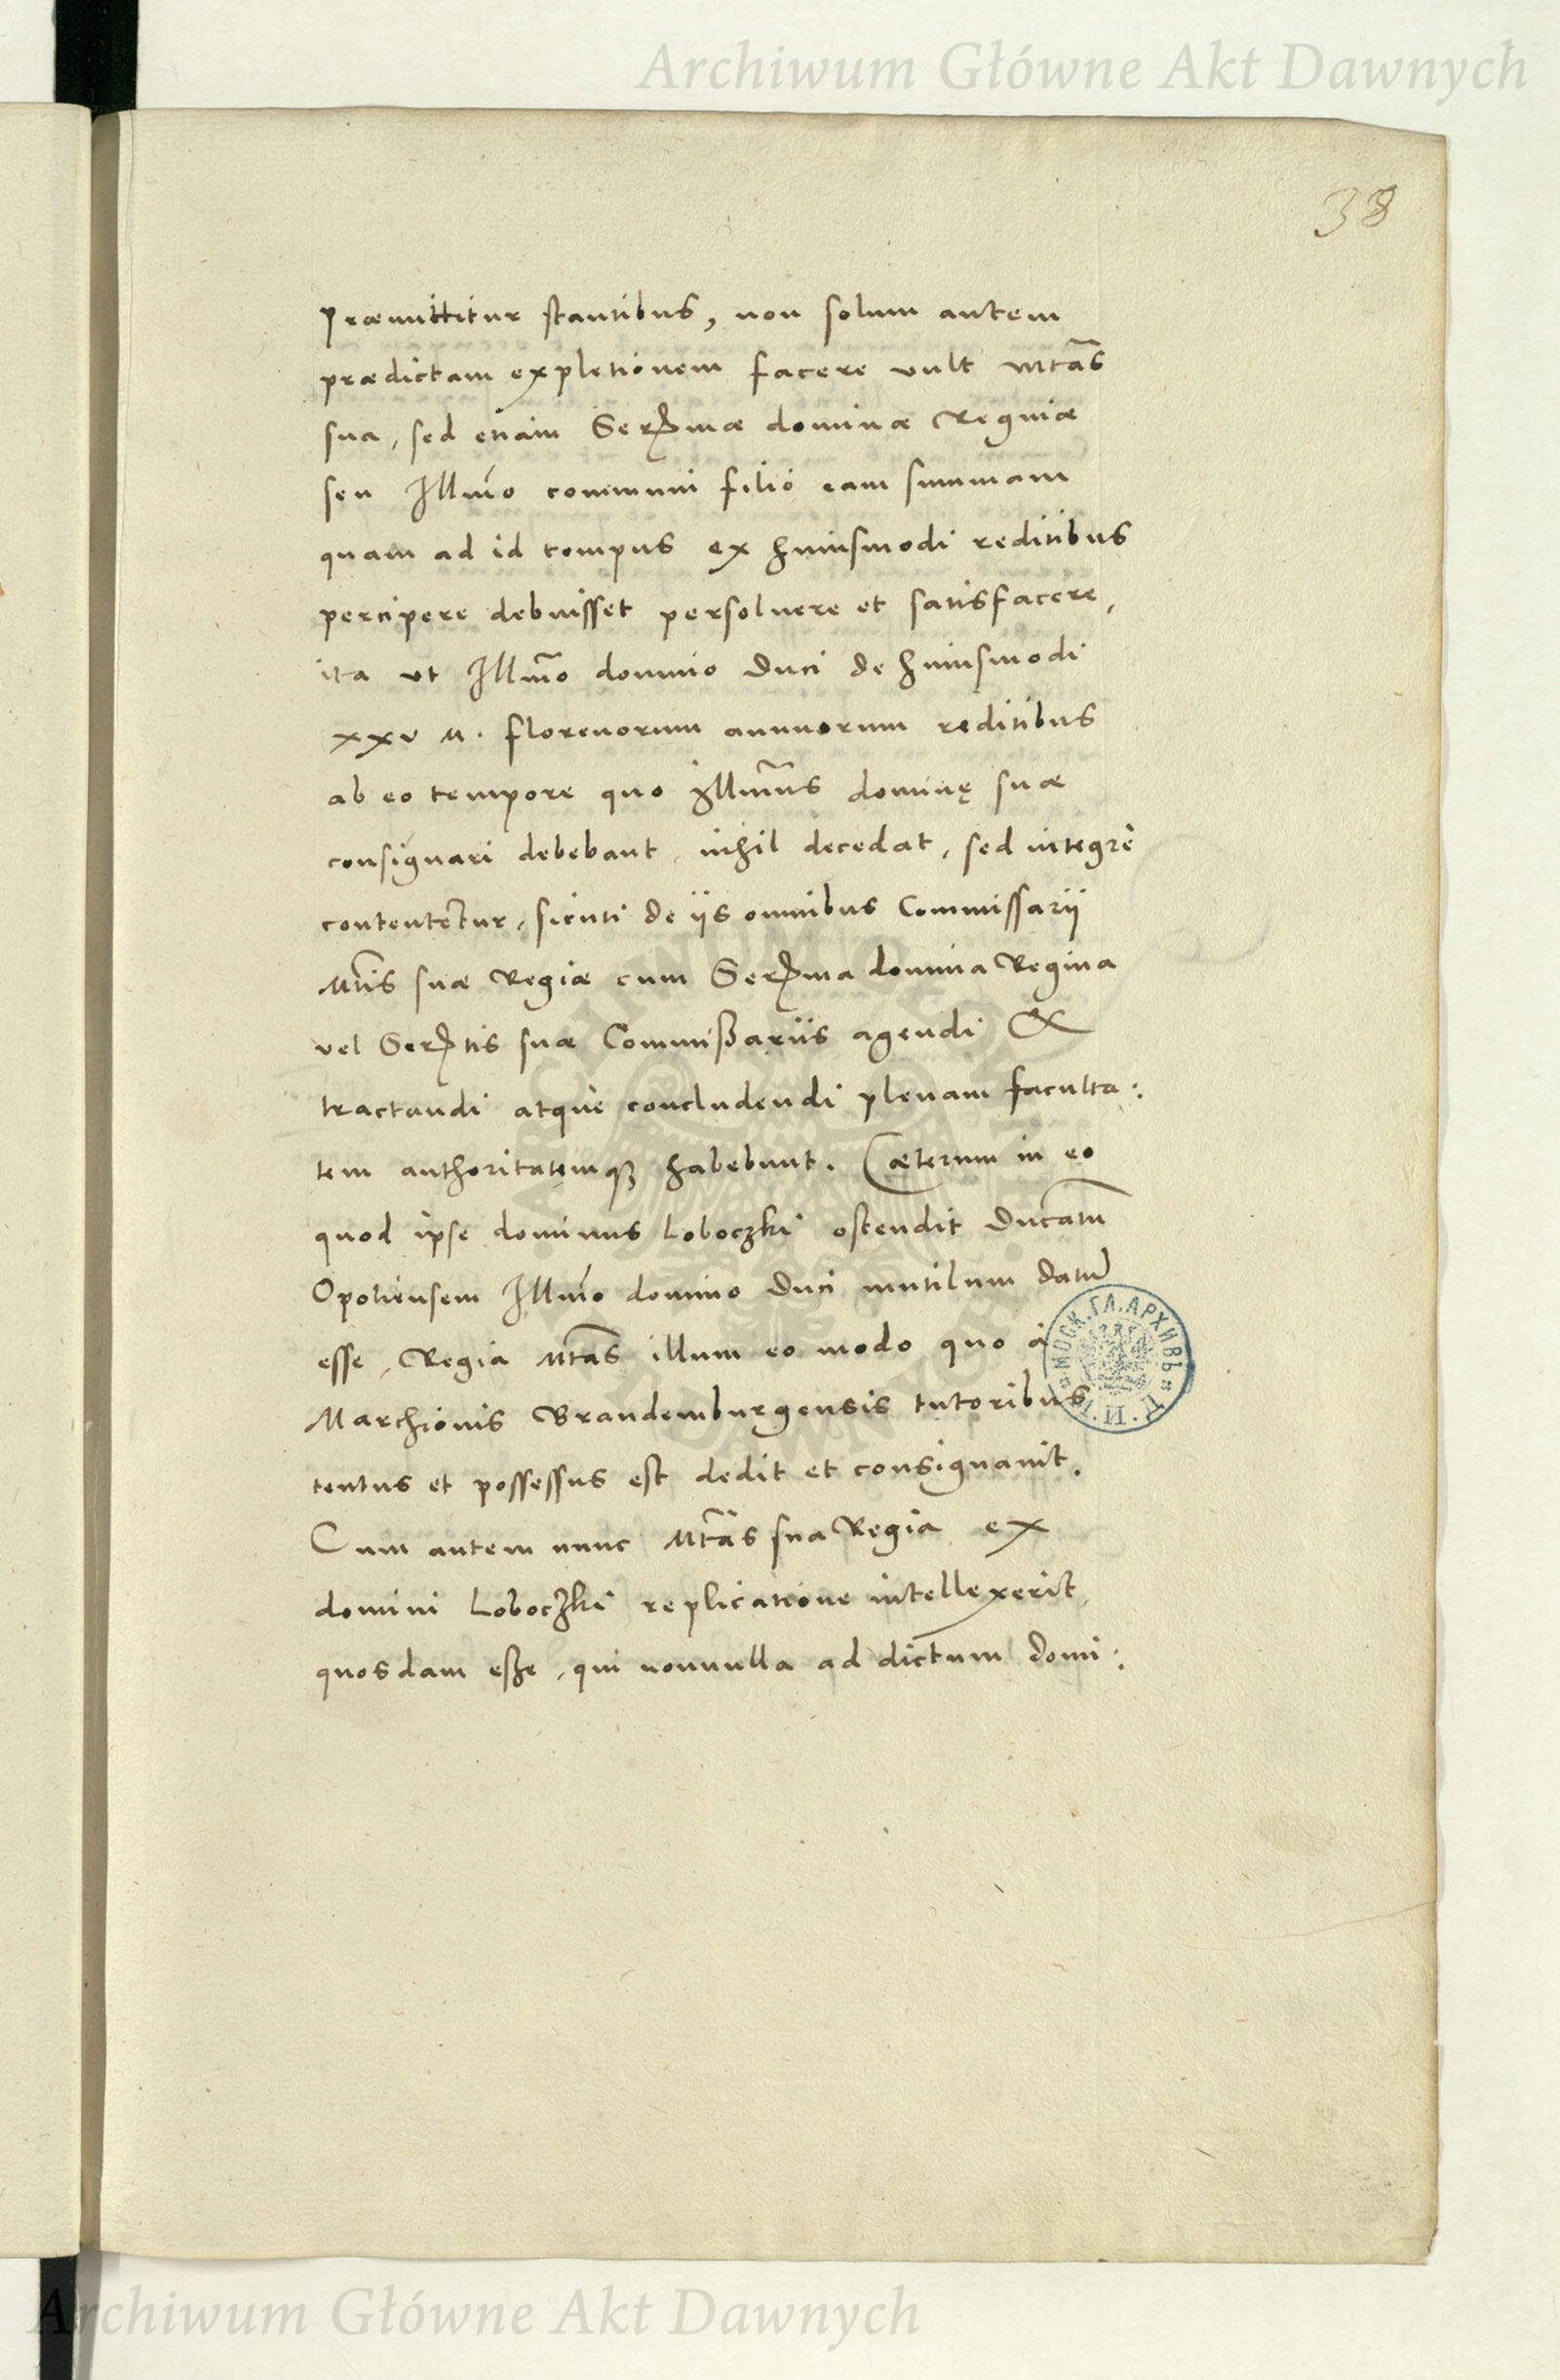 Archiwum Główne Akt Dawnych
38
præmittitur stantibus, non solum autem
prædictam expletionem facere vult Mtas
sua, sed etiam Serma dominæ Reginæ
seu Illmo communi filio eam summam
quam ad id tempus ex huiusmodi reditibus
percipere debuisset persoluere et satisfacere,
ita ut Illmo domino Duci de huiusmodi
xxv M. florenorum annuorum reditibus
ab eo tempore quo Illmus dominę suæ
consignari debebant, nihil decedat, sed integrè
contentetur, sicuti de iis omnibus Commissarij
Mtis suæ Regiæ cum Serma domina Regina
vel Sertis suæ Commißariis agendi &
tractandi atque concludendi plenam faculta:
tem authoritatemq habebunt. Cæterum in eo
quod ipse dominus Loboczki ostendit Ducatu
Opoliensem Illmo domino Duci mutilum datu
esse, Regia Mtas illum eo modo quo à
Marchionis Brandemburgensis tutoribus
tentus et possessus est dedit et consignauit.
Cum autem nunc Mtas sua Regia ex
domini Loboczki replicatione intellexerit
quosdam eße, qui nonnulla ad dictum domi:
МОСК. ГЛ. АРХИВЪ
Archiwum Główne Akt Dawnych